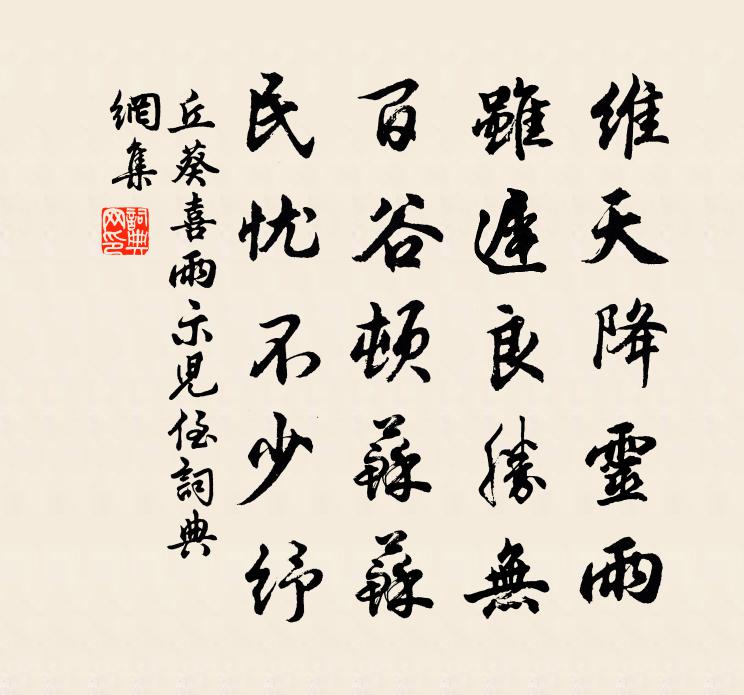 維天降靈雨
雖遲良勝無
百谷頓蘇蘇
民忧不少紓
丘葵喜雨示児侄詞典
網集
詞典网印